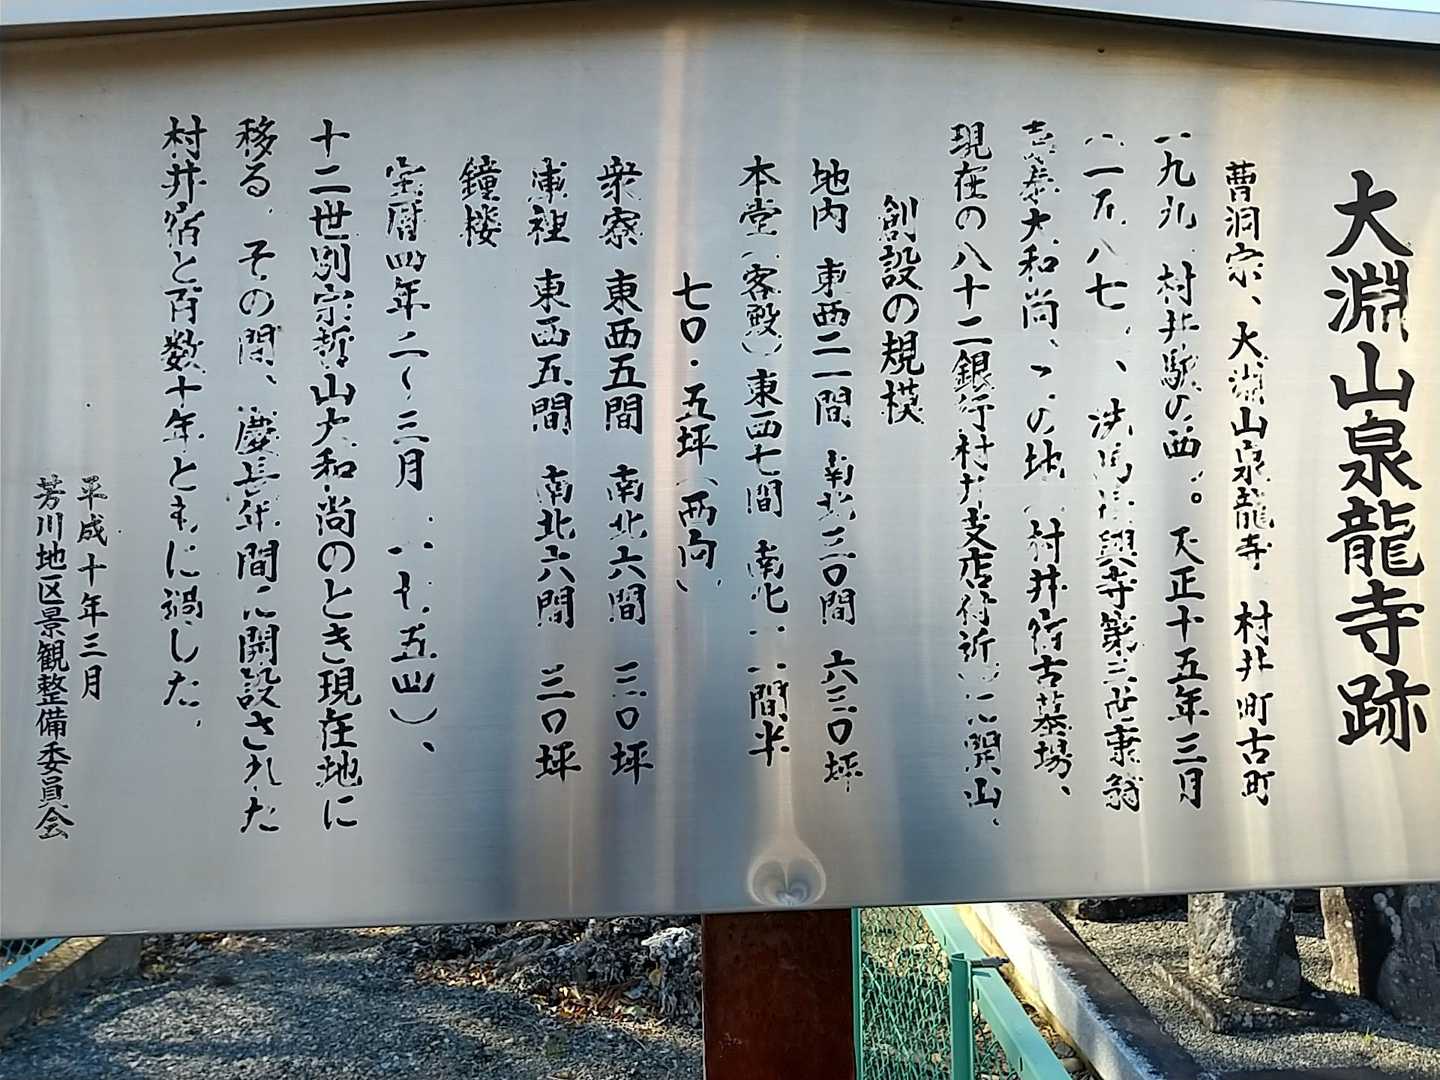 大淵山泉龍寺跡
曹洞宗、大淵山泉龍寺 村井町古町
一九九 村井駅の西 。天正十五年三月
(一五八七)、洗馬 興寺第三世東翁
大和尚、この地(村井宿古墓場、
現在の八十二銀行村井支店付近)に開山、
創設の規模
地内 東西二一間 南北三〇間 六三〇坪
本堂(客殿)東西七間 南北一一間半
七〇・五坪(西向)
衆寮 東西五間 南北六間 三〇坪
庫裡 東西五間 南北六間 三〇坪
鐘楼
宝暦四年二〜三月(一七五四)、
十二世別宗哲山大和尚のとき現在地に
移る。その間、慶長年間に開設された
村井宿と百数十年ともに過した。
平成十年三月
芳川地区景観整備委員会